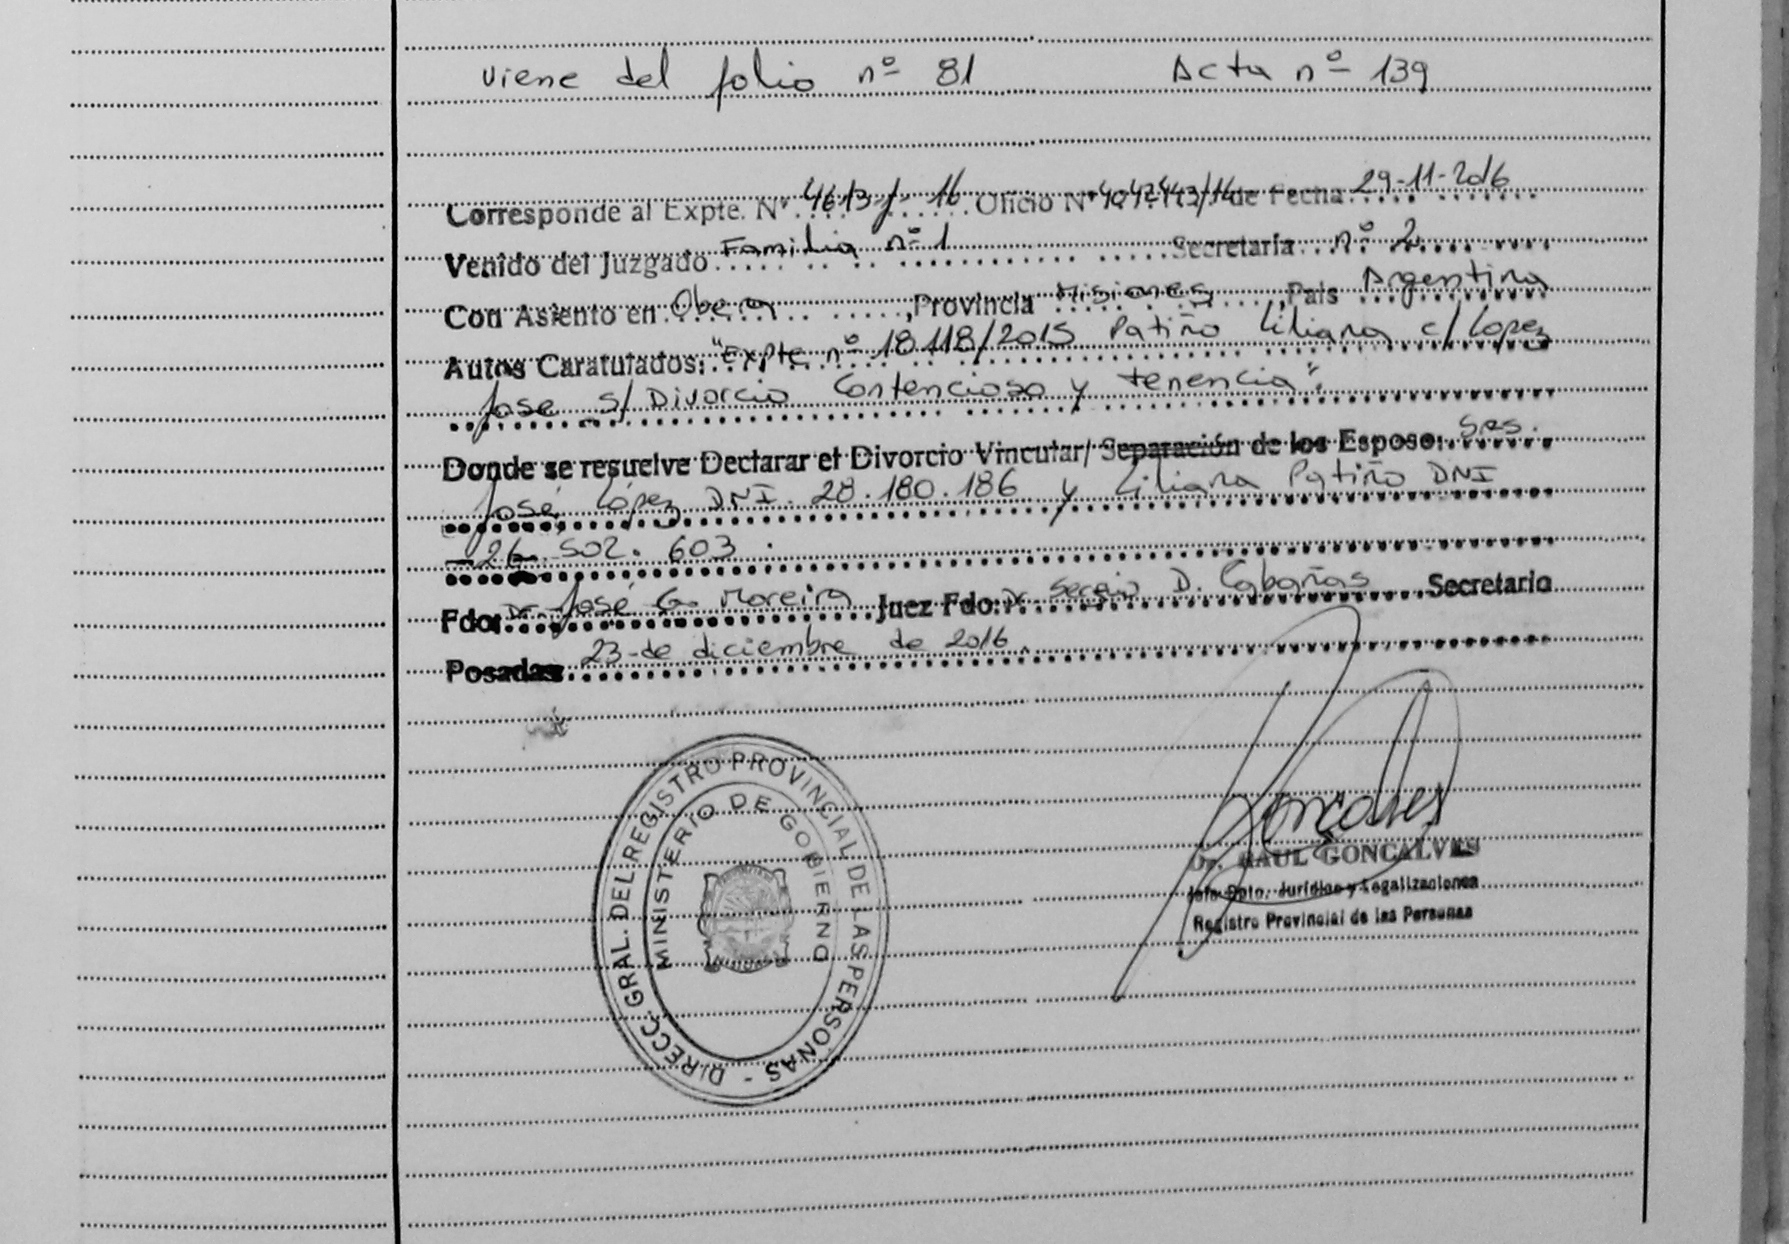 viene del folio nº 81 Acta nº 139
Corresponde al Expte. Nº 4613-J-16 Oficio Nº de Fecha 29-11-2016
Venido del Juzgado Familia nº 1 Secretaria nº 2
Con Asiento en Obera, Provincia Misiones, Pais Argentina
Autos Caratulados: "Expte nº 18118/2015 Patiño Liliana c/ Lopez
Jose s/ Divorcio Contencioso y tenencia".
Donde se resuelve Declarar el Divorcio Vincular/ Separación de los Esposo: Sres.
José López DNI 28.180.186 y Liliana Patiño DNI
26.502.603.
Fdo: Dr. José G. Moreira Juez Fdo: Dr. Sergio D. Cabañas Secretario
Posadas 23 de diciembre de 2016.
DIRECC. GRAL. DEL REGISTRO PROVINCIAL DE LAS PERSONAS -
MINISTERIO DE GOBIERNO
Gonçalves
Dr. RAUL GONCALVES
Jefe Dpto. Jurídico y Legalizaciones
Registro Provincial de las Personas